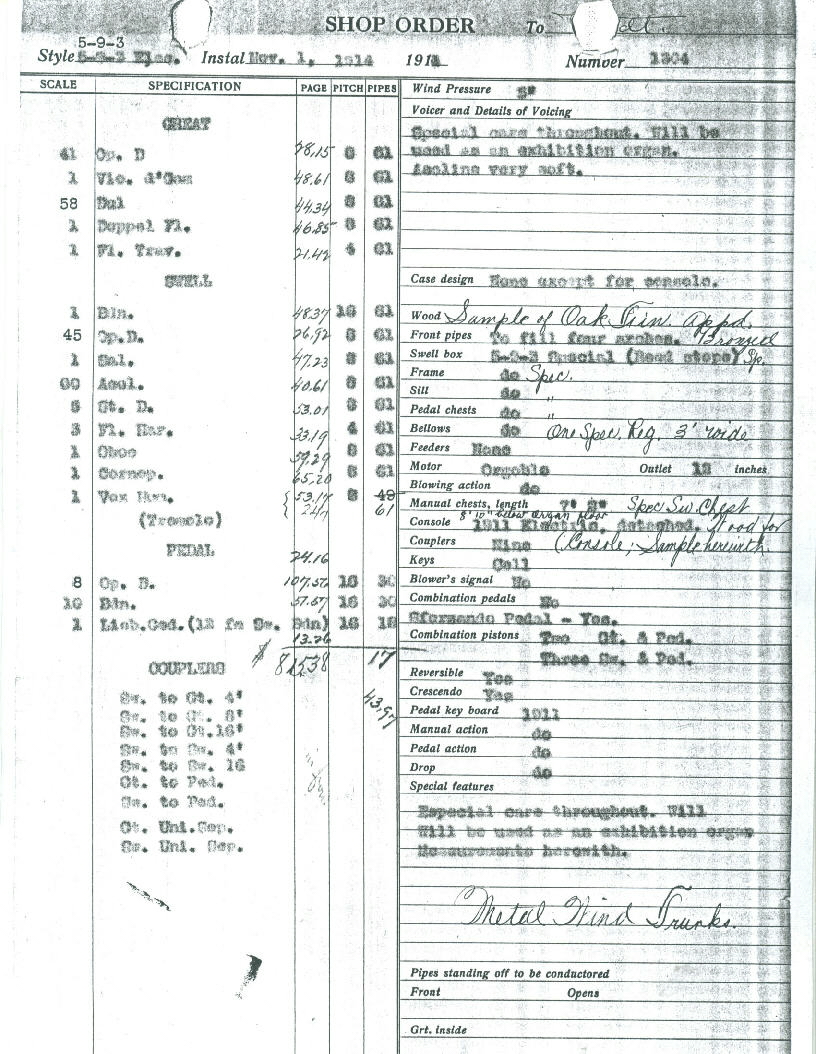 SHOP ORDER To
5-9-3
Style 5-9-3 Elec. Instal Nov. 1, 1914 191 Number 1304
SCALE SPECIFICATION PAGE PITCH PIPES
GREAT
41 Op. D 78.15 8 61
1 Vio. d'Gam 48.61 8 61
58 Dul 44.34 8 61
1 Doppel Fl. 46.85 8 61
1 Fl. Trav. 21.42 4 61
SWELL
1 Bdn. 48.37 16 61
45 Op.D. 26.92 8 61
1 Sal. 47.23 8 61
60 Aeol. 40.61 8 61
5 St. D. 53.01 8 61
3 Fl. Har. 33.19 4 61
1 Oboe 59.29 8 61
1 Cornop. 65.20 8 61
1 Vox Hum. 53.17 8 49
(Tremolo) 247 61
PEDAL
24.16
8 Op. D. 107.52 16 30
10 Bdn. 57.57 16 30
1 Lieb.Ged.(12 fm Sw. Bdn) 16 18
13.26
$ 815.38 17
43.97
COUPLERS
Sw. to Gt. 4'
Sw. to Gt. 8'
Sw. to Gt.16'
Sw. to Sw. 4'
Sw. to Sw. 16
Gt. to Ped.
Sw. to Ped.
Gt. Uni.Sep.
Sw. Uni. Sep.
Wind Pressure 5"
Voicer and Details of Voicing
Special care throughout. Will be
used as an exhibition organ.
Aeoline very soft.
Case design None except for console.
Wood Sample of Oak Fin. appd.
Front pipes To fill four arches. Bronzed
Swell box 5-9-3 Special (Reed stops) Sp.
Frame do Spec.
Sill do "
Pedal chests do "
Bellows do One Spec. Reg. 3' wide
Feeders None
Motor Orgoblo Outlet 12 inches
Blowing action do
Manual chests, length 7' 2" Spec Sw. Chest
8' 10" below organ floor
Console 1911 Electric, detached. Wood for
Couplers Nine (Console; Sample herewith.
Keys Cell
Blower's signal No
Combination pedals No
Sforzando Pedal - Yes.
Combination pistons Two Gt. & Ped.
Three Sw. & Ped.
Reversible Yes
Crescendo Yes
Pedal key board 1911
Manual action do
Pedal action do
Drop do
Special features
Especial care throughout. Will
Will be used as an exhibition organ
Measurements herewith.
Metal Wind Trunks.
Pipes standing off to be conductored
Front Opens
Grt. inside